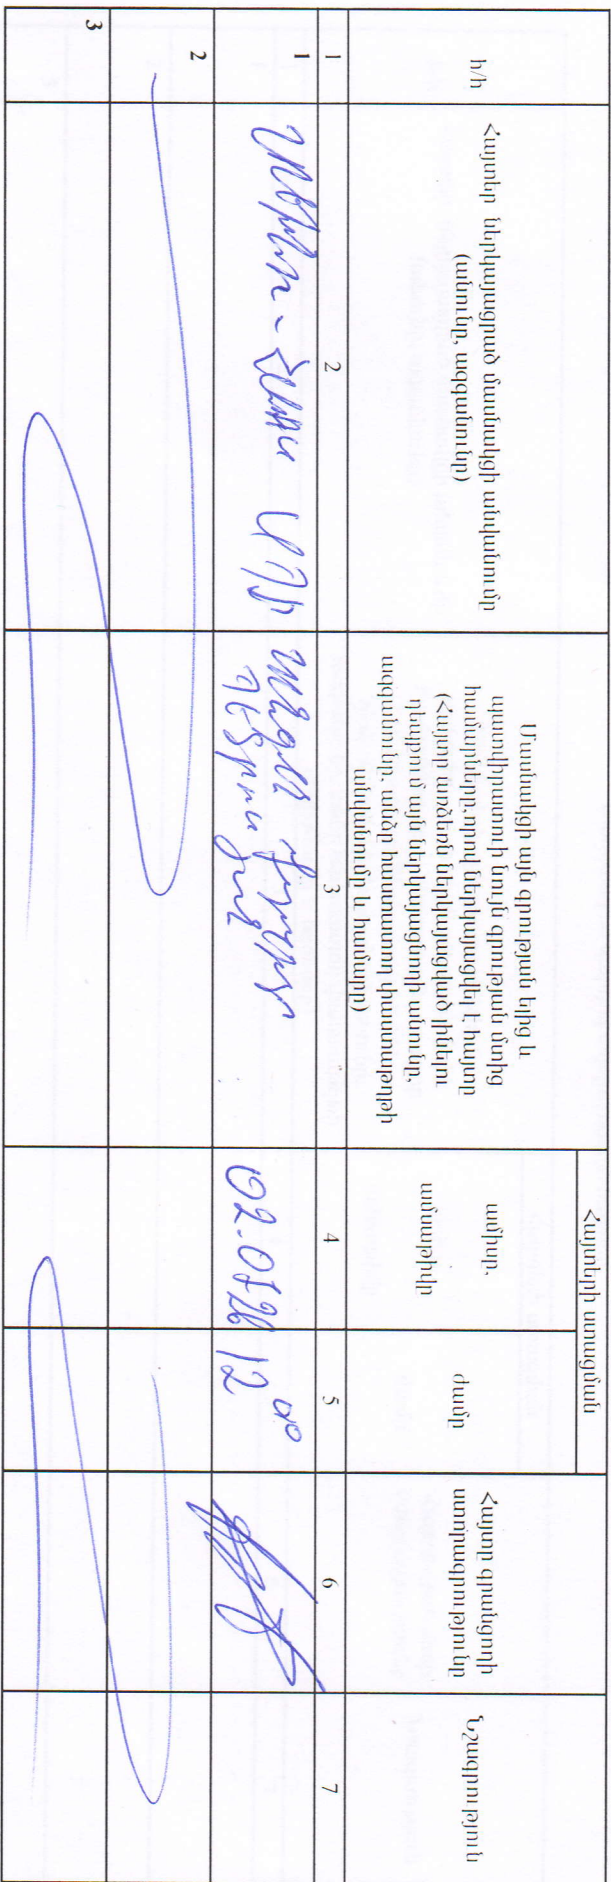 հ/հ
Հայտեր ներկայացրած մասնակցի անվանումը
(անունը, ազգանունը)
Մասնակցի այն գրության ելից և
պատվիրատուի նույն գրության մտից
համարները, որով ներկայացվել է հայտը
(Հայտը առձեռն ներկայացված լինելու
դեպքում այն ներկայացնողի անունը,
ազգանունը, անձը հաստատող փաստաթղթի
անվանումը և համարը)
Հայտերի ստացման
ամիսը,
ամսաթիվը
ժամը
Հայտը գրանցողի
ստորագրությունը
Նշագրություն
1 2 3 4 5 6 7
1 ՍՊԸ 02.07.26 12⁰⁰
Պետրոսյան
2
3